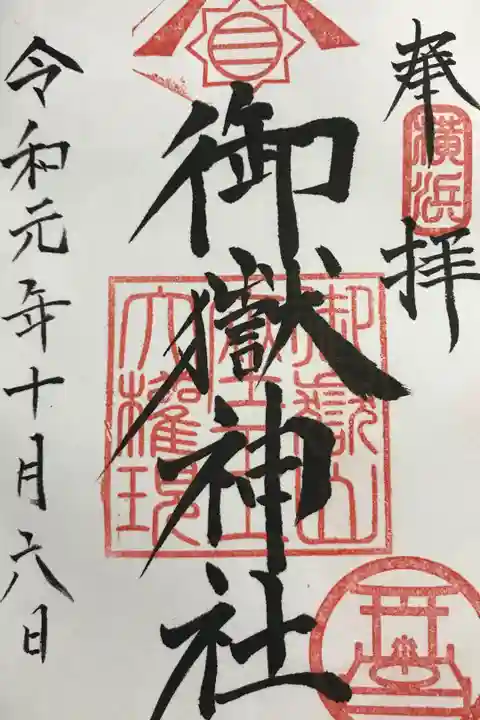 奉拝
横浜
御嶽神社
御嶽山
大権現
令和元年十月六日